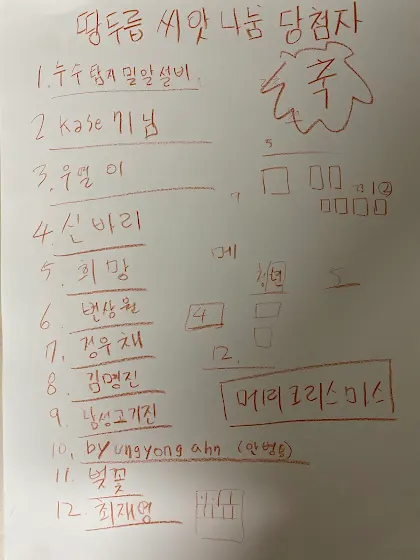 땅두릅 씨앗 나눔 당첨자
축
1. 누수탐지 밀알설비
2 kase 기님
3. 우열이
4. 신바리
5. 희망
6. 변상원
7. 정우채
8. 김명진
9. 남성고기진
10, byungyong ahn (안병용)
11. 벚꽃
12. 최재영
5
기
13 1 ②
메
청년
5
4
12.
메리크리스미스